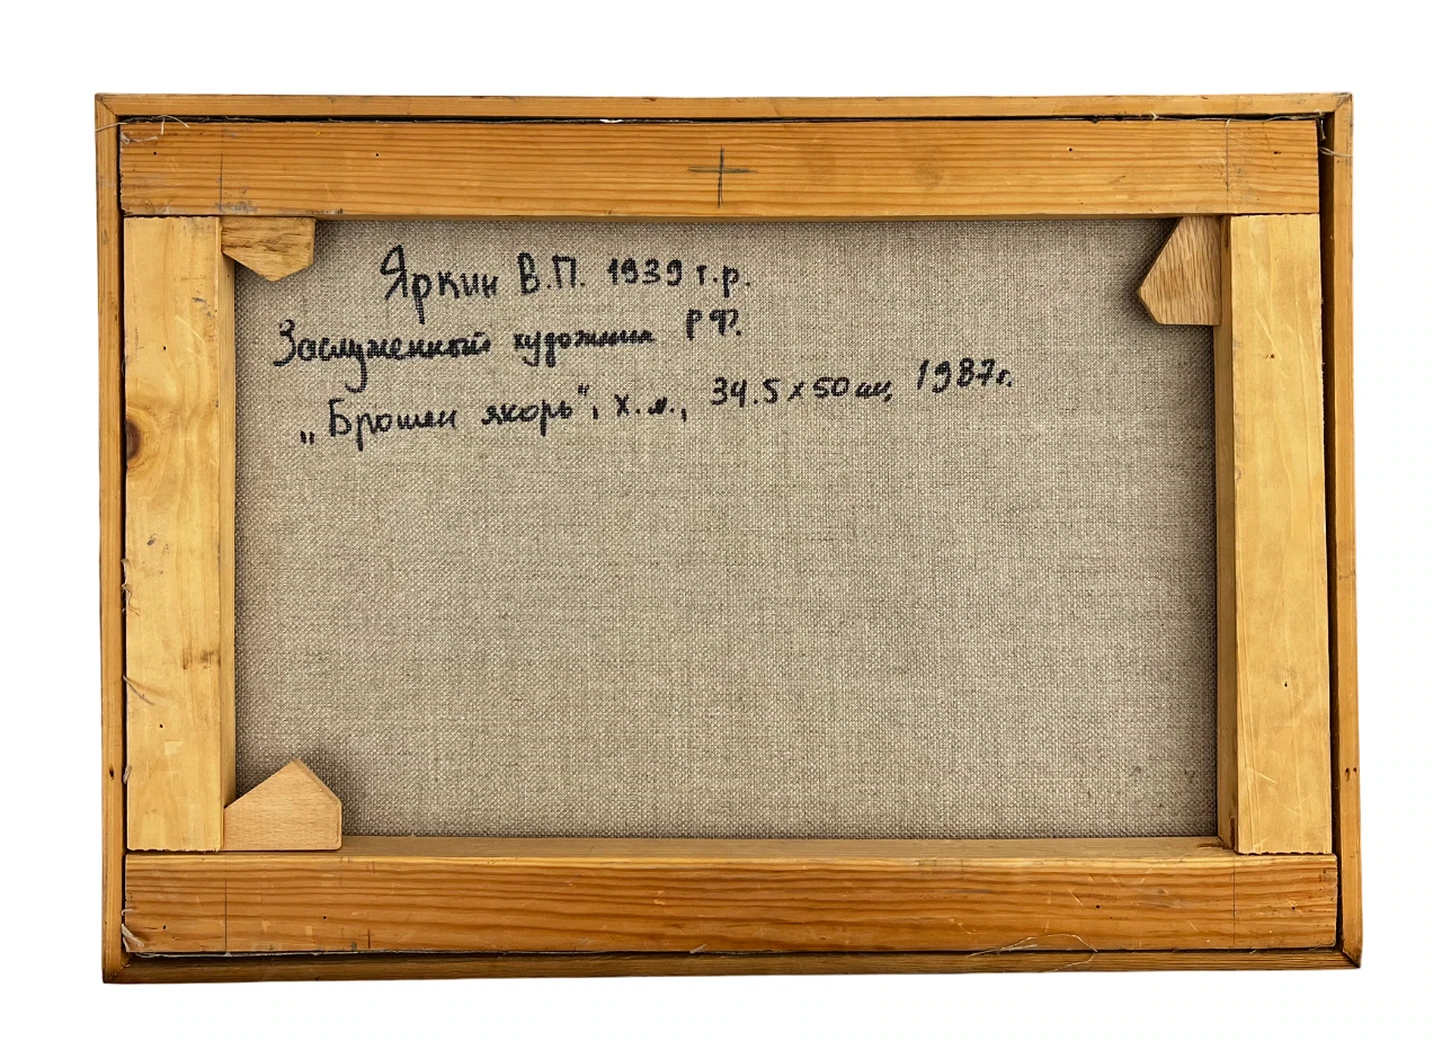 Яркин В.П. 1939 г.р.
Заслуженный художник РФ.
„Брошен якорь", х.м., 34.5 x 50 см, 1987г.